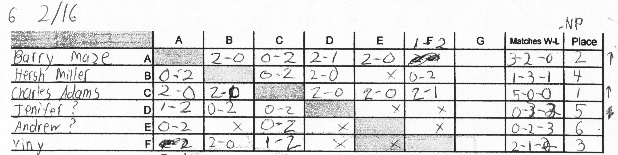 6 2/16 -NP
A B C D E 1-2 F G Matches W-L Place
Barry Maze A 2-0 0-2 2-1 2-0 3-2-0 2 ↑
Hersh Miller B 0-2 0-2 2-0 x 0-2 1-3-1 4
Charles Adams C 2-0 2-0 2-0 2-0 2-1 5-0-0 1 ↑
Jenifer ? D 1-2 0-2 0-2 x x 0-3-2 5
Andrew ? E 0-2 x 0-2 x x 0-2-3 6
Viny F 2-0 1-2 x x 3